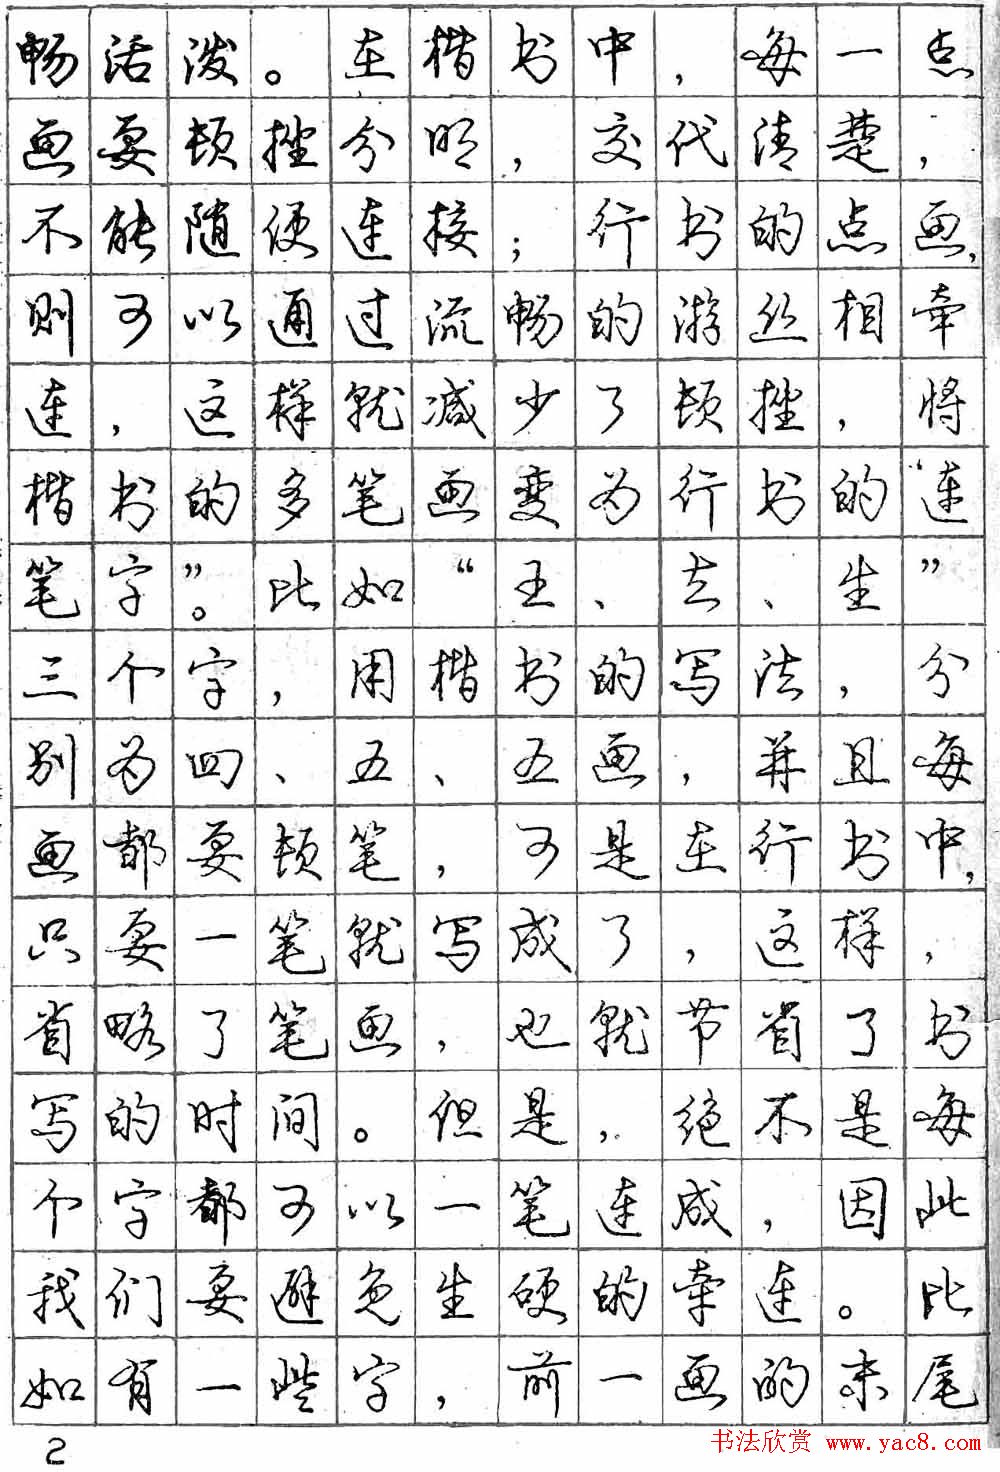 畅活泼。在楷书中，每一点
画要顿挫分明，交代清楚，
不能随便连接；行书的点画，
则可以通过流畅的游丝相牵
连，这样就减少了顿挫，将
楷书的多笔画变为行书的连
笔字”。比如“王、去、生”
三个字，用楷书的写法，分
别为四、五、五画，并且每
画都要顿笔，可是在行书中，
只要一笔就写成了，这样，
省略了笔画，也就节省了书
写的时间。但是，绝不是每
个字都可以一笔连成，因此
我们要避免生硬的牵连。比
如有一些字，前一画的末尾
2
书法欣赏 www.yac8.com